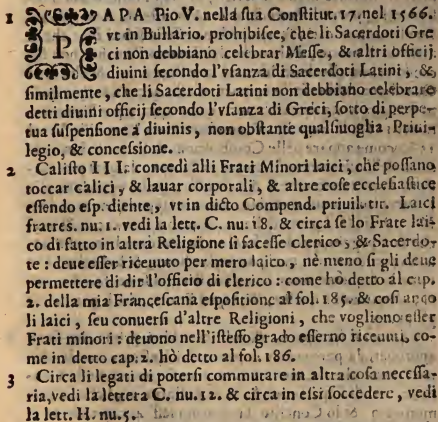 1 PAPA Pio V. nella ſua Conſtitut. 17. nel 1566.
vt in Bullario. prohibiſce, che li Sacerdoti Gre
ci non debbiano celebrar Meſſe, & altri officij
diuini ſecondo l'vſanza di Sacerdoti Latini, &
ſimilmente, che li Sacerdoti Latini non debbiano celebrare
detti diuini officij ſecondo l'vſanza di Greci, ſotto di perpe-
tua ſuſpenſione à diuinis, non obſtante qualſiuoglia Priui-
legio, & conceſſione.
2 Caliſto III. concedi alli Frati Minori laici, che poſſano
toccar calici, & lauar corporali, & altre coſe eccleſiaſtice
eſſendo eſpediente, vt in dicto Compend. priuil. tit. Laici
fratres. nu. 1. vedi la lett. C. nu. 18. & circa ſe lo Frate lai-
co di fatto in altra Religione ſi faceſſe clerico, & Sacerdo-
te: deue eſſer riceuuto per mero laico, nè meno ſi gli deue
permettere di dir l'officio di clerico: come hò detto al cap.
2. della mia Franceſcana eſpoſitione al fol. 185. & coſi anco
li laici, ſeu conuerſi d'altre Religioni, che vogliono eſſer
Frati minori: deuono nell'iſteſſo grado eſſerno riceuuti, co-
me in detto cap. 2. hò detto al fol. 186.
3 Circa li legati di poterſi commutare in altra coſa neceſſa-
ria, vedi la lettera C. nu. 12. & circa in eſsi ſoccedere, vedi
la lett. H. nu. 5.